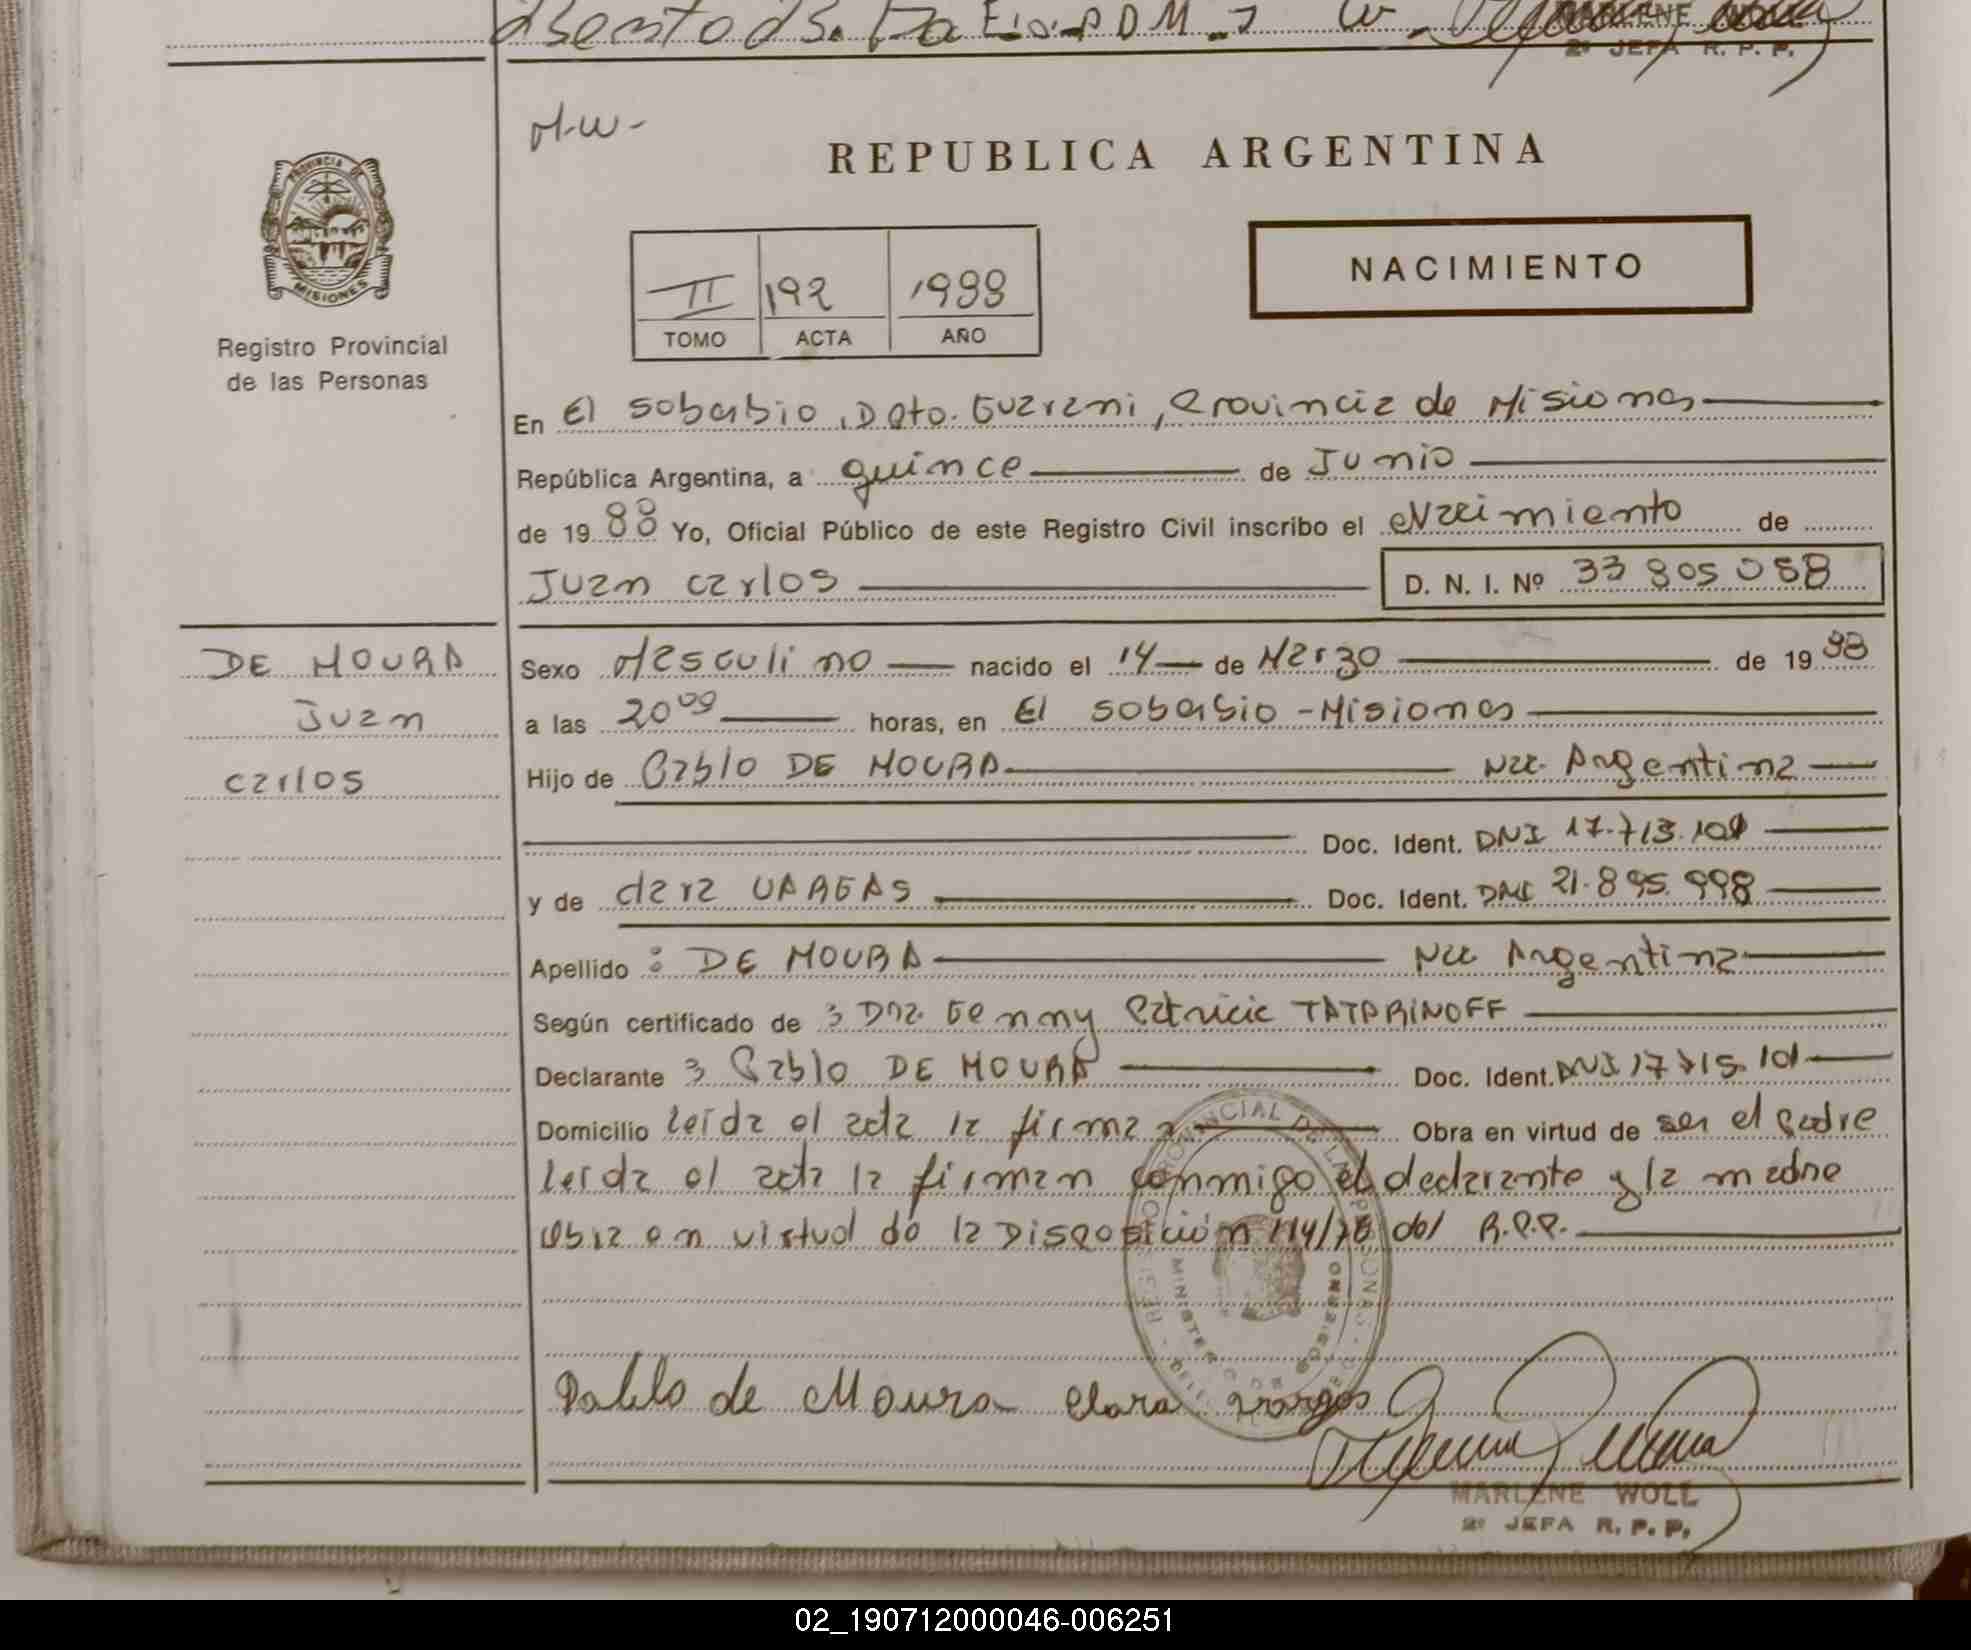 asentada.
MARLENE WOLL
2º JEFA R. P. P.
M.W-
REPUBLICA ARGENTINA
PROVINCIA DE MISIONES
Registro Provincial
de las Personas
II 192 1988
TOMO ACTA AÑO
NACIMIENTO
En El Soberbio, Dpto. Guarani, Provincia de Misiones
República Argentina, a quince de Junio
de 1988 Yo, Oficial Público de este Registro Civil inscribo el Nacimiento de
Juan Carlos D. N. I. Nº 33 805 058
DE MOURA
Juan
Carlos
Sexo Masculino nacido el 14 de Marzo de 1988
a las 20 00 horas, en El Soberbio - Misiones
Hijo de Pablo DE MOURA Nac. Argentina
Doc. Ident. DNI 17.713.101
y de Clara VARGAS Doc. Ident. DNI 21.895.998
Apellido : DE MOURA Nac Argentina
Según certificado de : Dra. Genny Patricia TATARINOFF
Declarante : Pablo DE MOURA Doc. Ident. DNI 17 715.101
Domicilio leida el acta la firma Obra en virtud de ser el padre
leida el acta la firman conmigo el declarante y la madre
Obra en virtud de la Disposición 114/76 del R.P.P.
Pablo de Moura Clara Vargas
MARLENE WOLL
2º JEFA R. P. P.
02_190712000046-006251